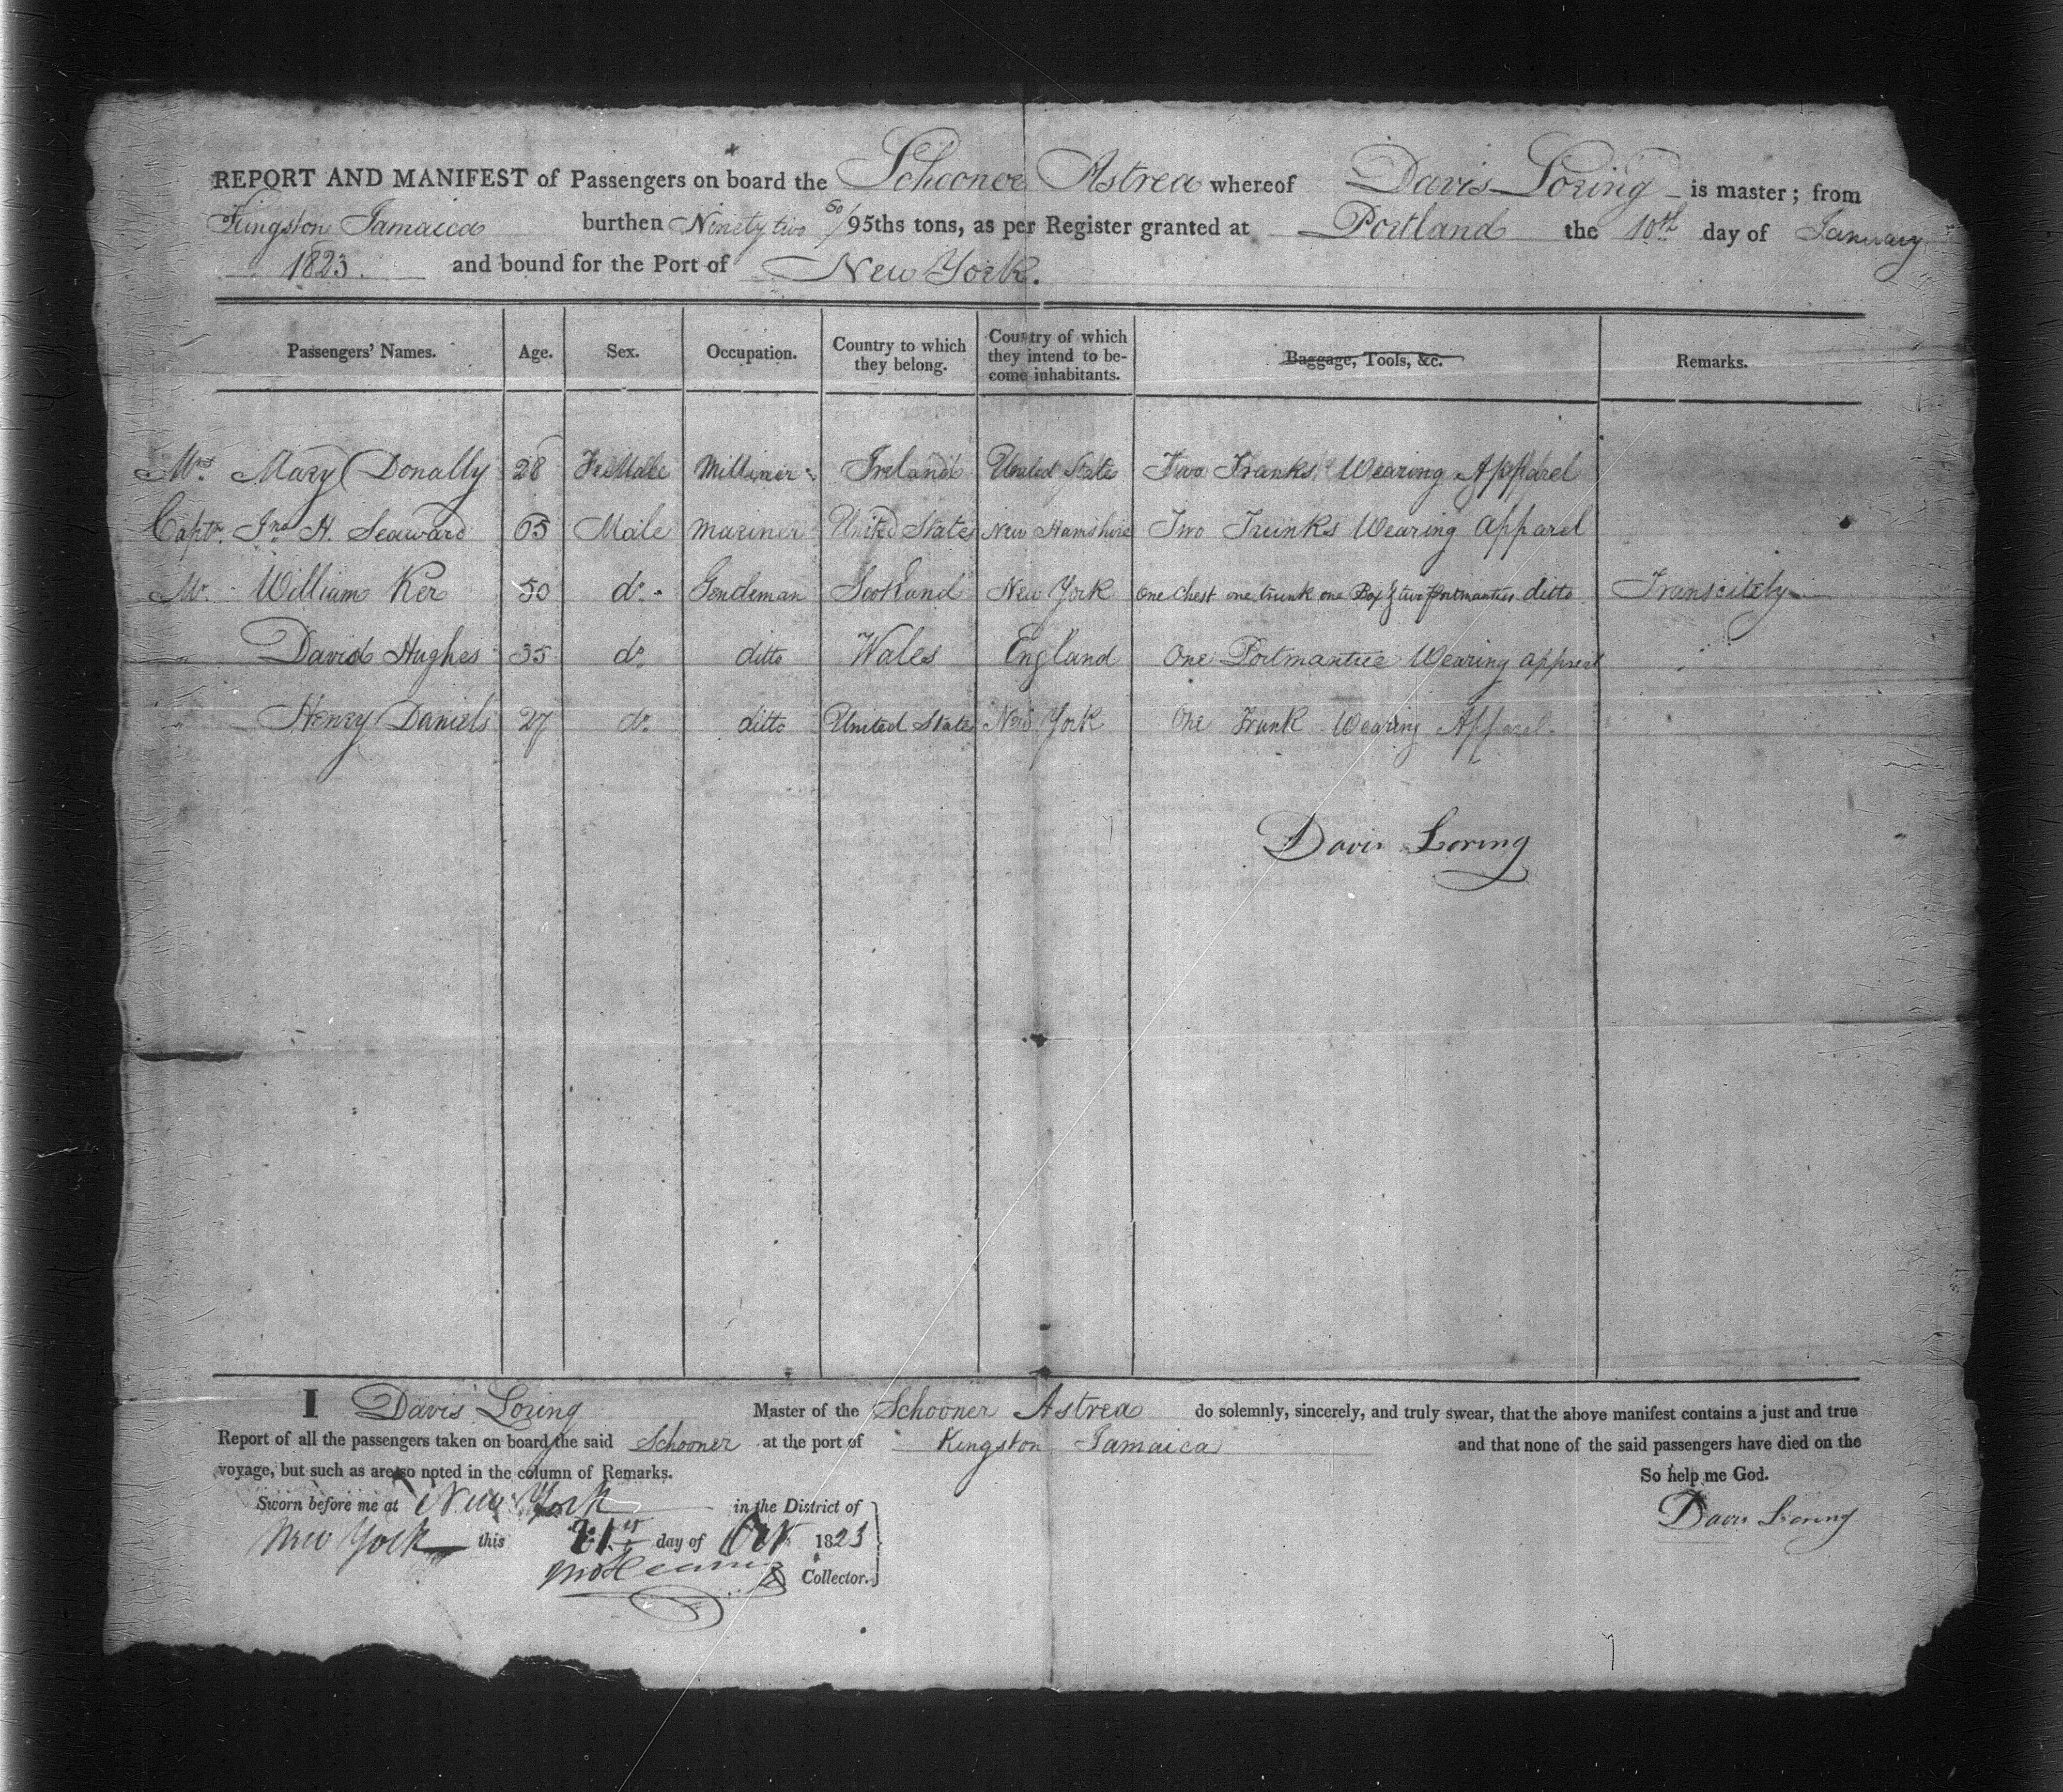 REPORT AND MANIFEST of Passengers on board the Schooner Astrea whereof Davis Loring is master; from
Kingston Jamaica burthen Ninety two 60/95ths tons, as per Register granted at Portland the 10th day of January
1823. and bound for the Port of New York.
Passengers' Names. Age. Sex. Occupation. Country to which they belong. Country of which they intend to be-come inhabitants. Baggage, Tools, &c. Remarks.
Mrs. Mary Donally 28 FeMale Milliner Ireland United State Two Trunks Wearing Apparel
Captn. Jno H. Seaward 65 Male Mariner United States New Hamshire Two Trunks Wearing Apparel
Mr. William Ker 50 do. Gendeman Scotland New York One Chest one trunk one Box & two portmanties ditto Transcitely
" David Hughes 35 do. ditto Wales England One Portmantue Wearing apprel "
" Henry Daniels 27 do. ditto United States New York One Trunk Wearing Apparel.
Davis Loring
I Davis Loring Master of the Schooner Astrea do solemnly, sincerely, and truly swear, that the above manifest contains a just and true
Report of all the passengers taken on board the said Schooner at the port of Kingston Jamaica and that none of the said passengers have died on the
voyage, but such as are so noted in the column of Remarks. So help me God.
Sworn before me at New York in the District of Davis Loring
New York this 21st day of Oct 1823
Collector.